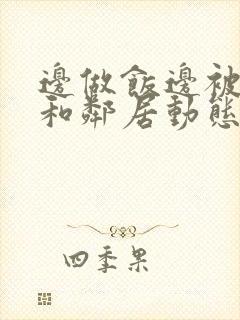 邊做飯邊被
和鄰居動態
四季果